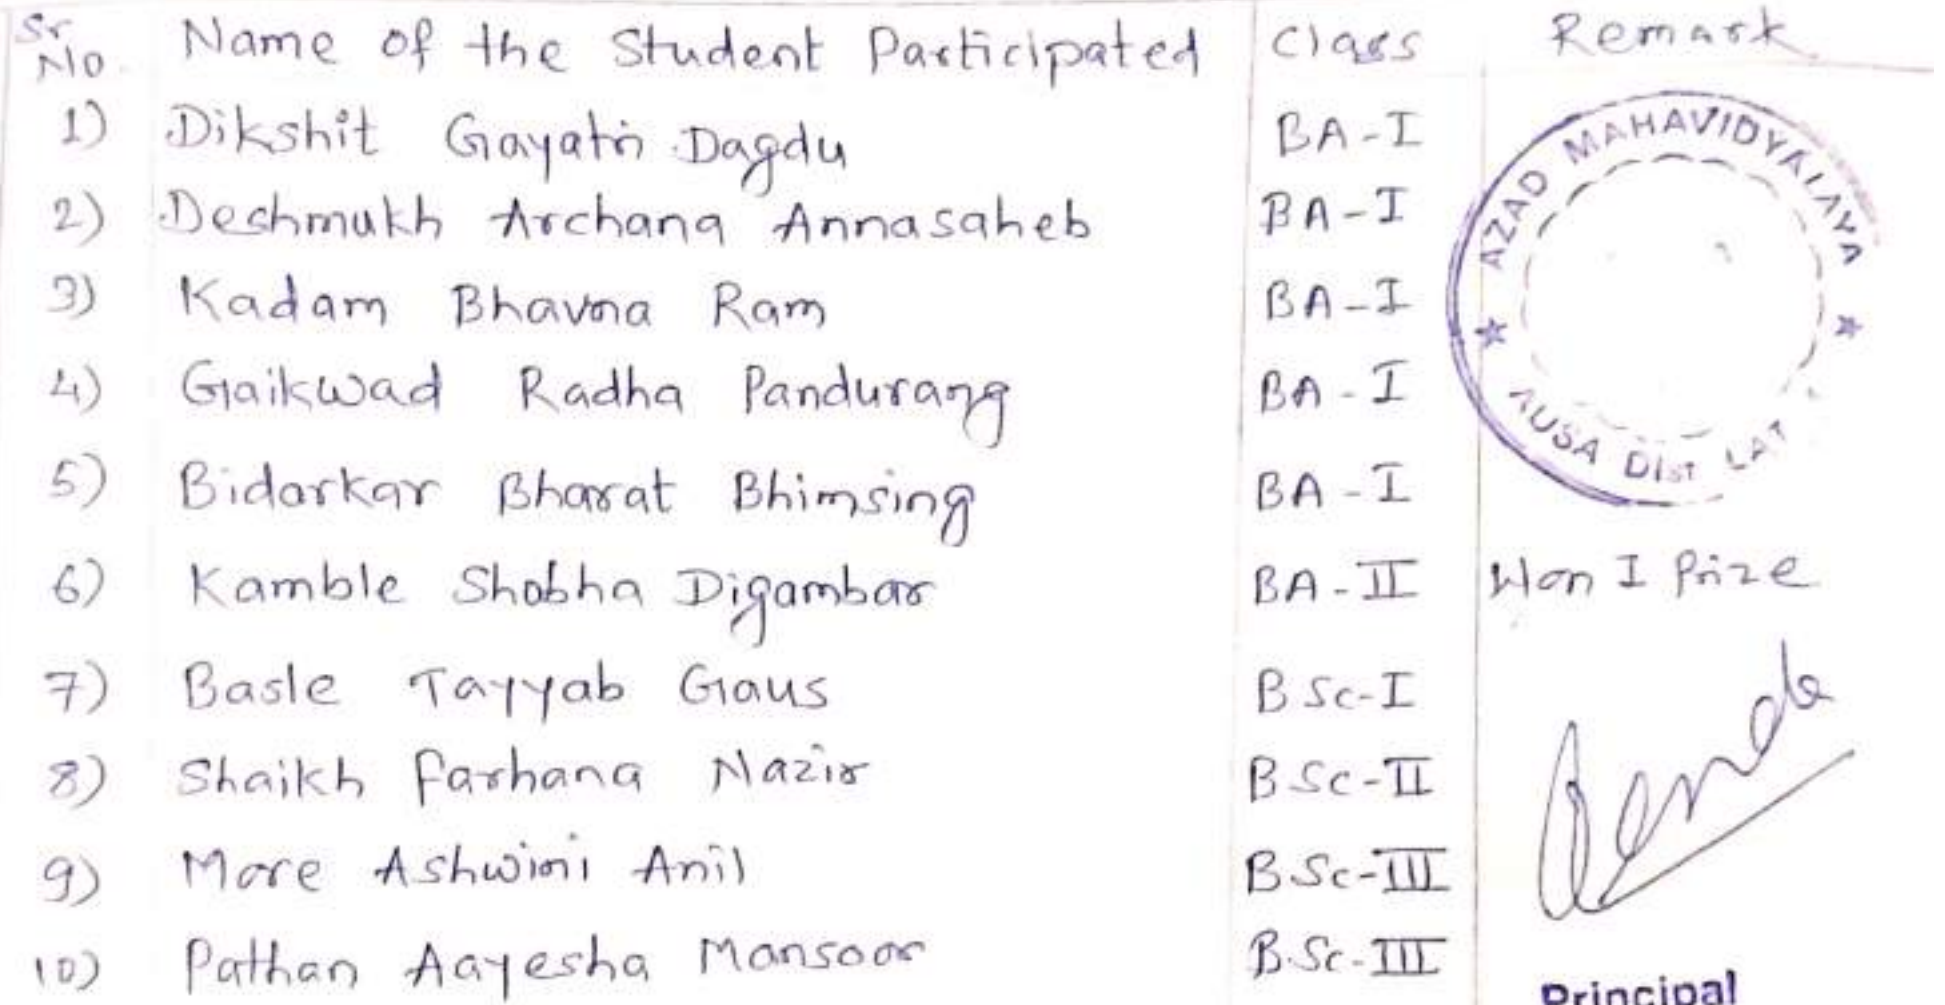 Sr No. Name of the Student Participated Class Remark
1) Dikshit Gayatri Dagdu BA-I
2) Deshmukh Archana Annasaheb BA-I
3) Kadam Bhavna Ram BA-I
4) Gaikwad Radha Pandurang BA-I
5) Bidarkar Bharat Bhimsing BA-I
6) Kamble Shobha Digambar BA-II Won I Prize
7) Basle Tayyab Gaus B Sc-I
8) Shaikh Farhana Nazir B Sc-II
9) More Ashwini Anil B.Sc-III
10) Pathan Aayesha Mansoor B.Sc-III
AZAD MAHAVIDYALAYA
AUSA DIST LAT
Principal